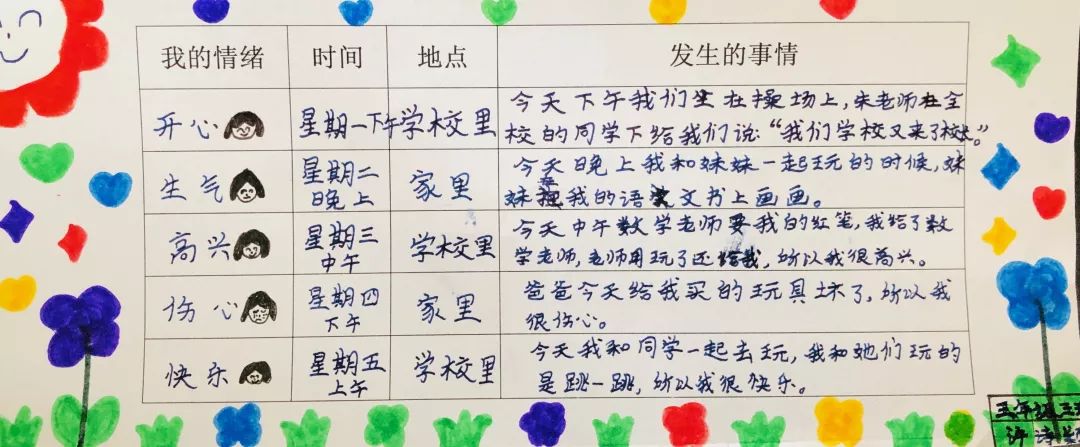 我的情绪 时间 地点 发生的事情
开心 星期一下午 学校里 今天下午我们坐在操场上，朱老师在全
校的同学下给我们说：“我们学校又来了校长。”
生气 星期二 家里 今天晚上我和妹妹一起玩的时候，妹
晚上 妹在我的语文书上画画。
高兴 星期三 学校里 今天中午数学老师要我的红笔，我给了数
中午 学老师，老师用完了还给我，所以我很高兴。
伤心 星期四 家里 爸爸今天给我买的玩具坏了，所以我
下午 很伤心。
快乐 星期五 学校里 今天我和同学一起去玩，我和她们玩的
上午 是跳一跳，所以我很快乐。
五年级
许